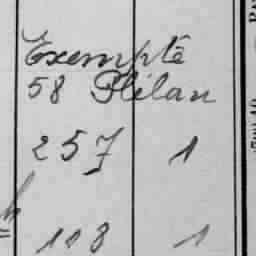 Exempté
58 Plélan
257 1
108 1